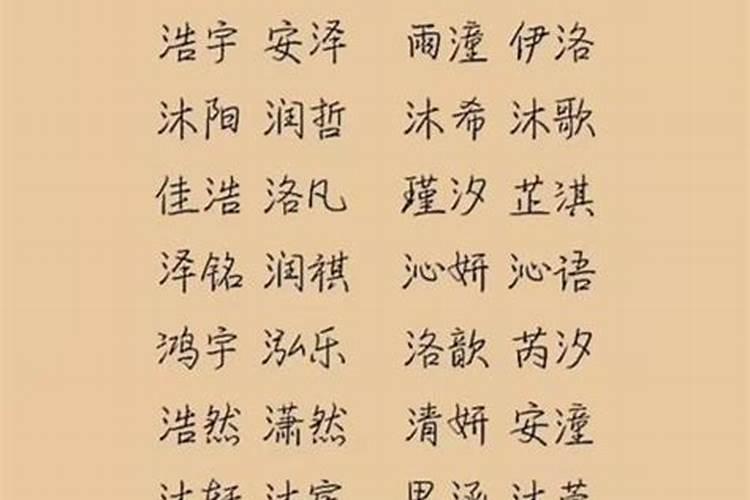 浩宇 安泽 雨潼 伊洛
沐阳 润哲 沐希 沐歌
佳浩 洛凡 瑾汐 芷淇
泽铭 润祺 沁妍 沁语
鸿宇 泓乐 洛歆 芮汐
浩然 潇然 清妍 安潼